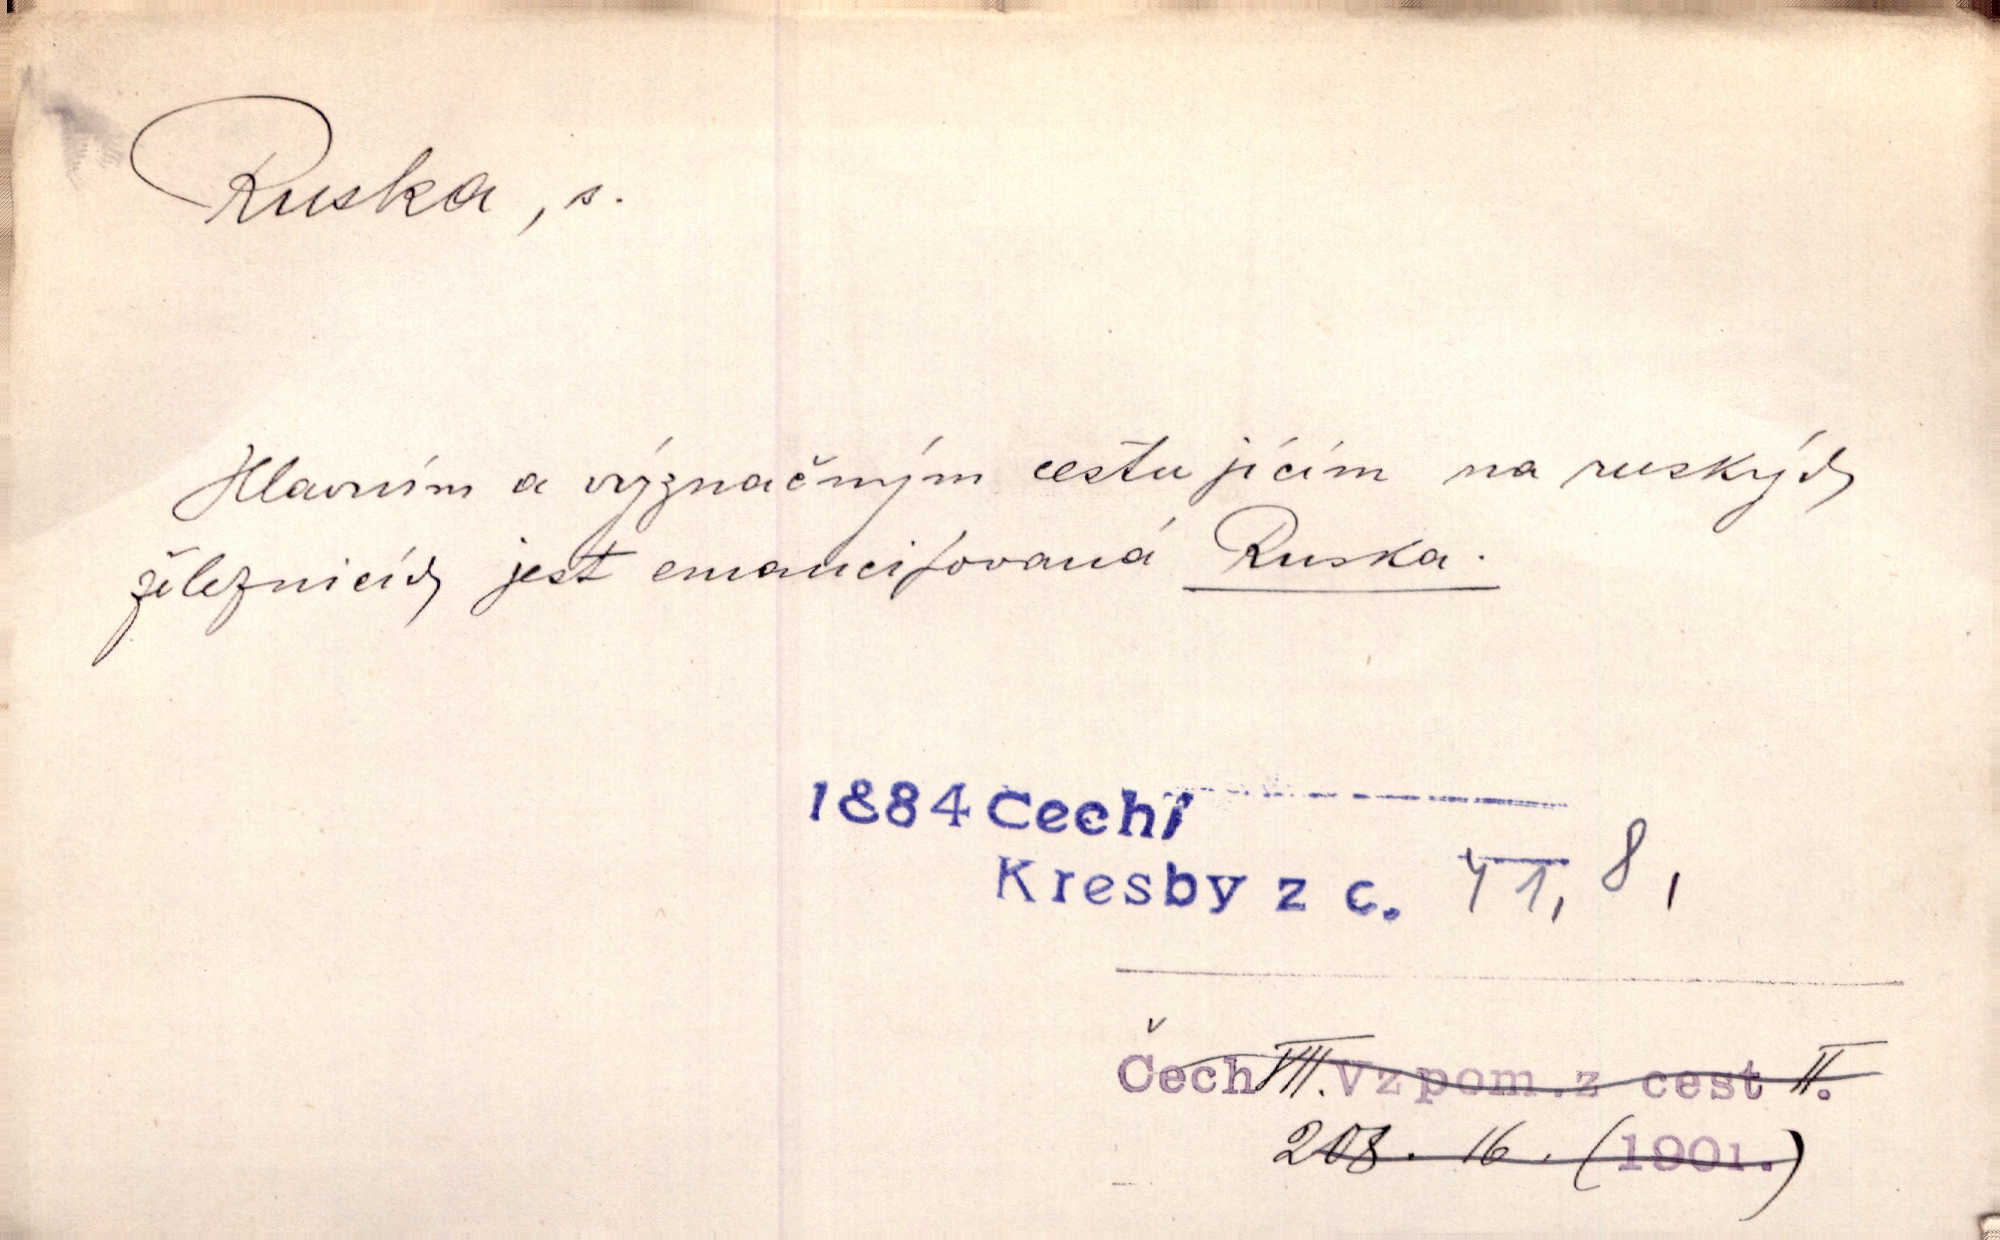 Ruska, s.
Hlavním a význačným cestujícím na ruských
železnicích jest emancipovaná Ruska.
1884 Čech
Kresby z c. 41, 8,
Čech VII. Vzpom. z cest II.
208. 16. (1901.)